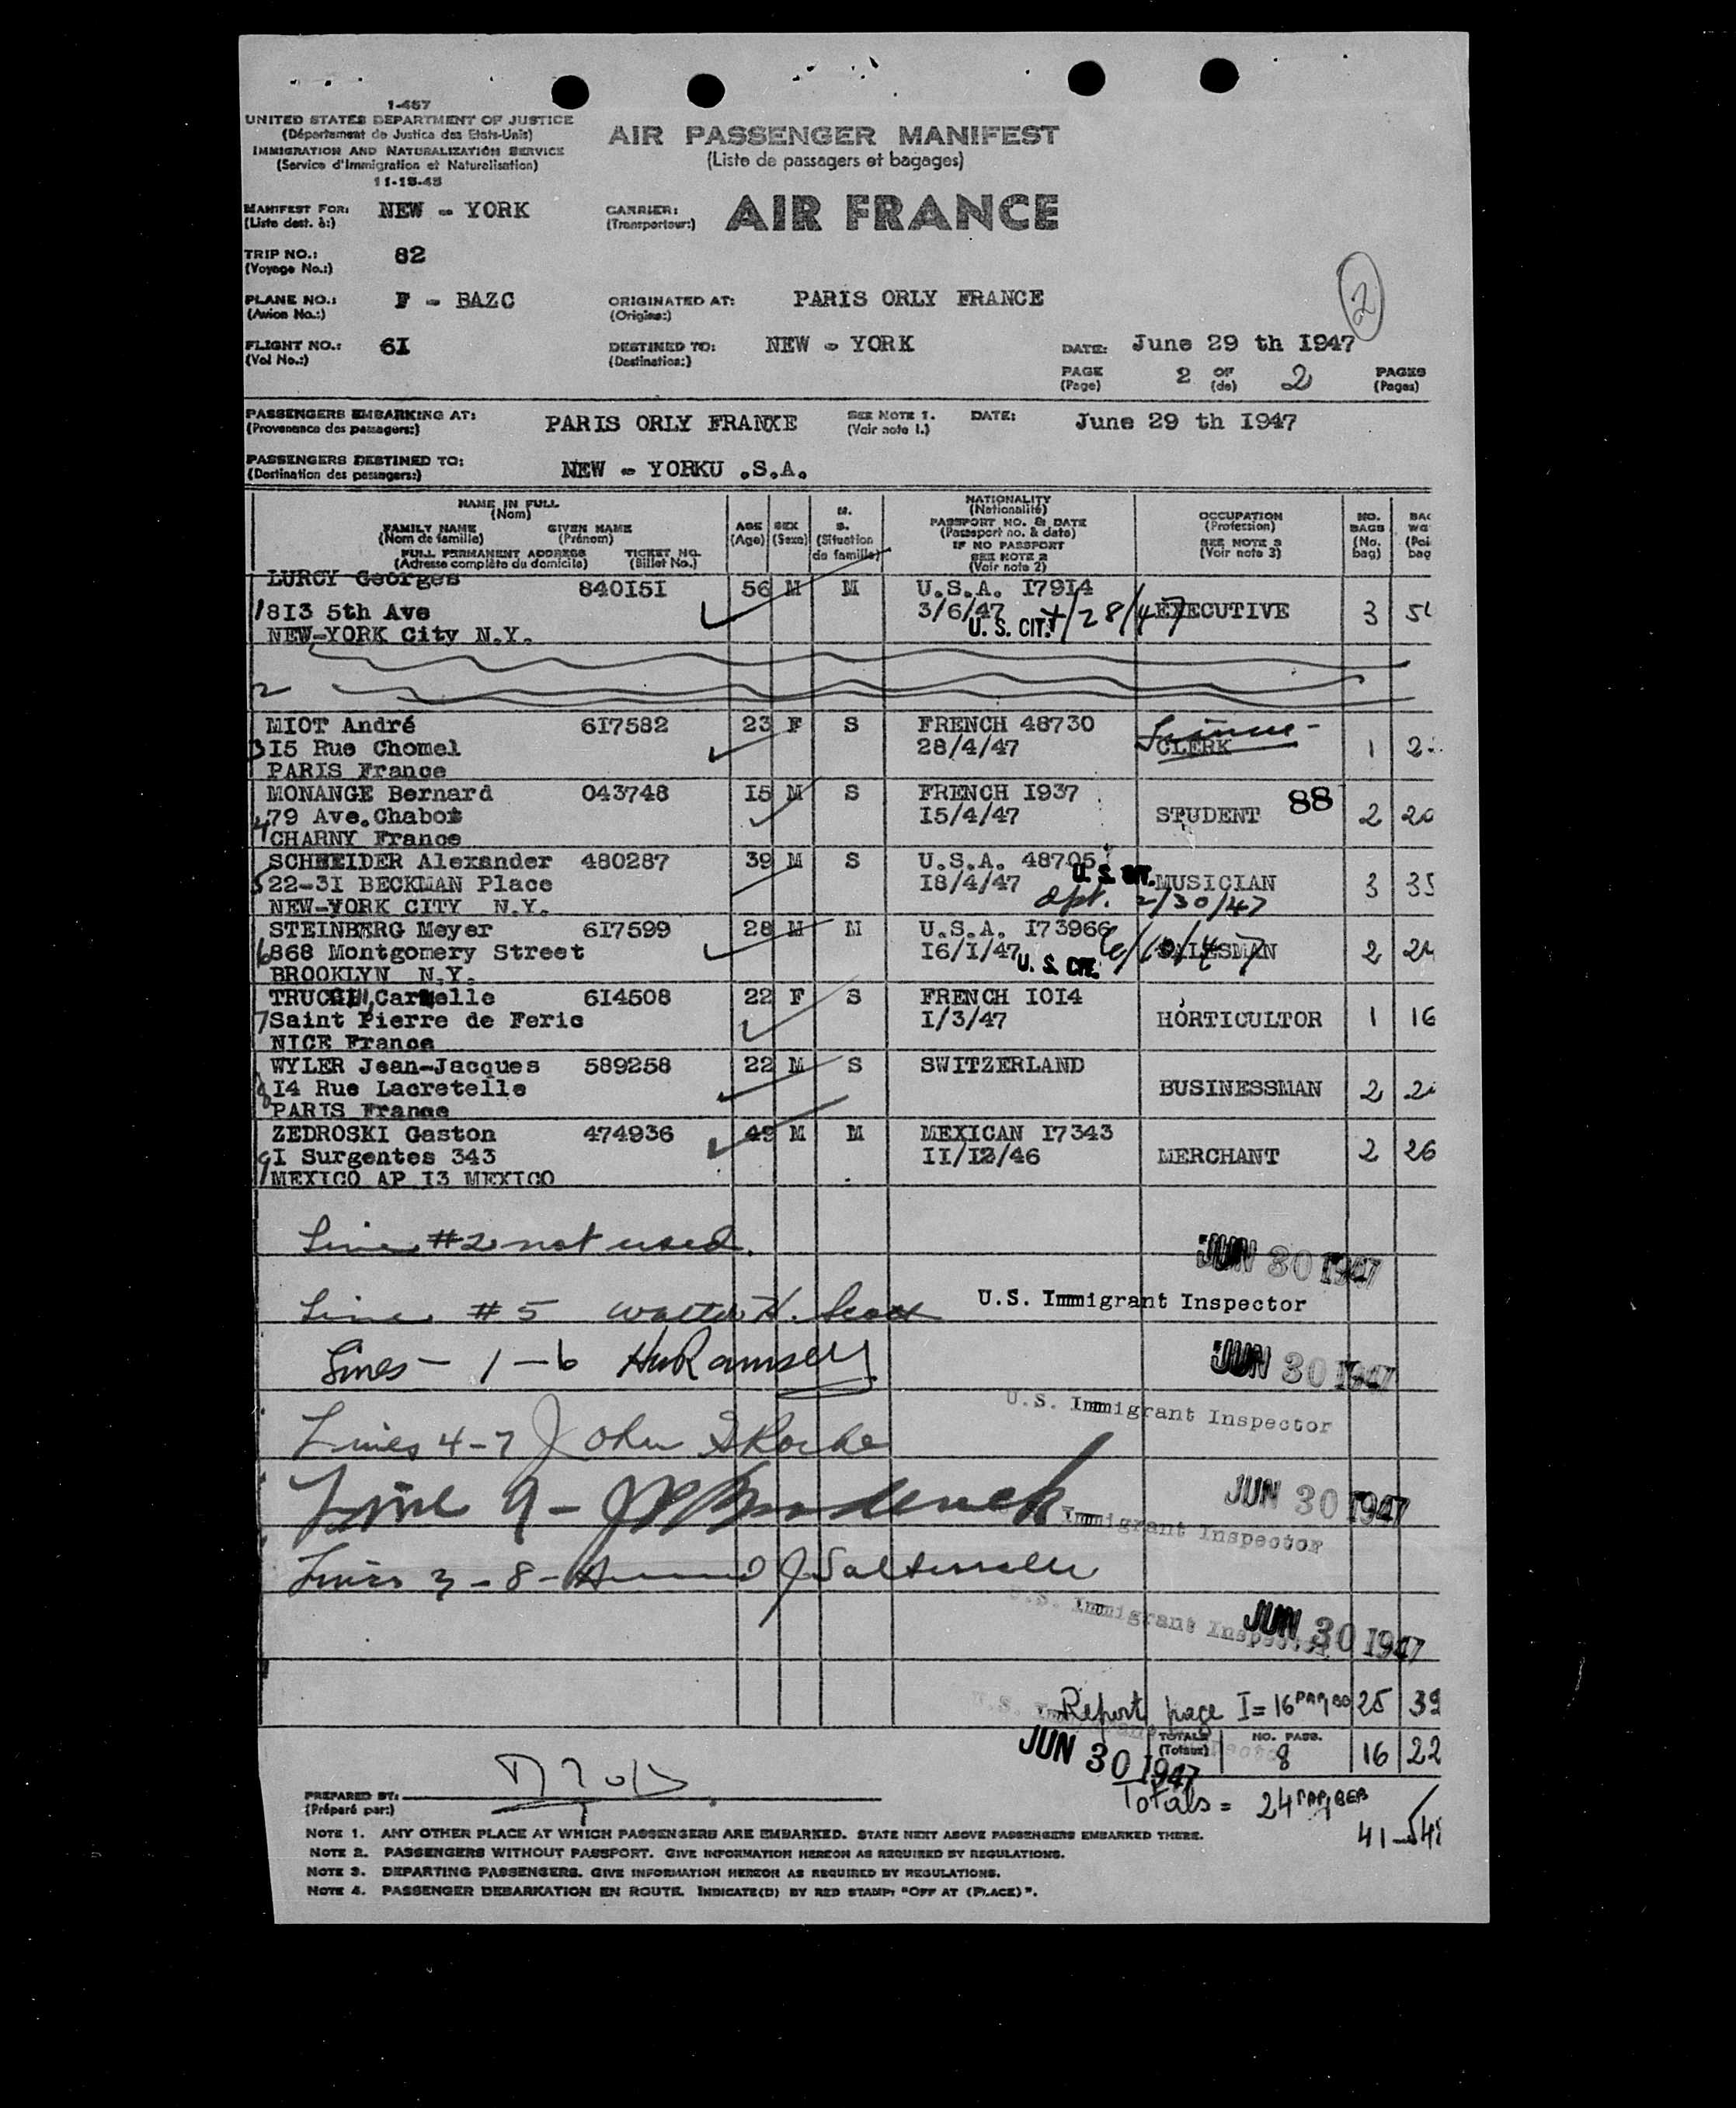 1-467
UNITED STATES DEPARTMENT OF JUSTICE
(Département de Justice des Etats-Unis)
IMMIGRATION AND NATURALIZATION SERVICE
(Service d'Immigration et Naturalisation)
11-15-45
AIR PASSENGER MANIFEST
(Liste de passagers et bagages)
MANIFEST FOR: NEW - YORK
(Liste dest. à:)
CARRIER: AIR FRANCE
(Transporteur:)
TRIP NO.: 82
(Voyage No.:)
2
PLANE NO.: F - BAZC
(Avion No.:)
ORIGINATED AT: PARIS ORLY FRANCE
(Origine:)
FLIGHT NO.: 6I
(Vol No.:)
DESTINED TO: NEW - YORK
(Destination:)
DATE: June 29 th I947
PAGE 2 OF 2 PAGES
(Page) (de) (Pages)
PASSENGERS EMBARKING AT: PARIS ORLY FRANXE
(Provenance des passagers:)
SEE NOTE 1. DATE: June 29 th I947
(Voir note 1.)
PASSENGERS DESTINED TO: NEW - YORKU .S.A.
(Destination des passagers:)
NAME IN FULL
(Nom)
FAMILY NAME GIVEN NAME
(Nom de famille) (Prénom)
FULL PERMANENT ADDRESS TICKET NO.
(Adresse complète du domicile) (Billet No.)
AGE
(Age)
SEX
(Sexe)
M.
S.
(Situation
de famille)
NATIONALITY
(Nationalité)
PASSPORT NO. & DATE
(Passeport no. & date)
IF NO PASSPORT
SEE NOTE 2
(Voir note 2)
OCCUPATION
(Profession)
SEE NOTE 3
(Voir note 3)
NO.
BAGS
(No.
bag)
BAG
WG
(Poi
bag
LURCY Georges 840I5I 56 M M U.S.A. I79I4
1 8I3 5th Ave 3/6/47 U. S. CIT. 4/28/47 EXECUTIVE 3
NEW-YORK City N.Y.
2
MIOT André 6I7582 23 F S FRENCH 48730
3 I5 Rue Chomel 28/4/47 CLERK 1
PARIS France
MONANGE Bernard 043748 I5 M S FRENCH I937
4 79 Ave.Chabot I5/4/47 STUDENT 88 2 20
CHARNY France
SCHNEIDER Alexander 480287 39 M S U.S.A. 48705
5 22-3I BECKMAN Place I8/4/47 U. S. CIT. MUSICIAN 3 35
NEW-YORK CITY N.Y.
STEINBERG Meyer 6I7599 28 M M U.S.A. I73966
6 868 Montgomery Street I6/I/47 U. S. CIT. 6/10/47 SALESMAN 2 24
BROOKLYN N.Y.
6I4508 22 F S FRENCH IOI4
7 Saint Pierre de Feric I/3/47 HORTICULTOR 1 16
NICE France
WYLER Jean-Jacques 589258 22 M S SWITZERLAND
8 I4 Rue Lacretelle BUSINESSMAN 2
PARIS France
ZEDROSKI Gaston 474936 49 M M MEXICAN I7343
9 I Surgentes 343 II/I2/46 MERCHANT 2 26
MEXICO AP I3 MEXICO
Line #2 not used.
JUN 30 1947
Line #5 Walter H. Scott U.S. Immigrant Inspector
Lines - 1-6 HwRamsey JUN 30 1947
U.S. Immigrant Inspector
Lines 4-7 John
Line 9 - JUN 30 1947
Immigrant Inspector
Lines 3-8 -
U.S. Immigrant Inspector
JUN 30 1947
Report page I = 16 25 39
JUN 30 1947
TOTALS NO. PASS.
(Totaux) 8 16 22
Totals = 24
41
PREPARED BY:
(Préparé par:)
NOTE 1. ANY OTHER PLACE AT WHICH PASSENGERS ARE EMBARKED. STATE NEXT ABOVE PASSENGERS EMBARKED THERE.
NOTE 2. PASSENGERS WITHOUT PASSPORT. GIVE INFORMATION HEREON AS REQUIRED BY REGULATIONS.
NOTE 3. DEPARTING PASSENGERS. GIVE INFORMATION HEREON AS REQUIRED BY REGULATIONS.
NOTE 4. PASSENGER DEBARKATION EN ROUTE. INDICATE(D) BY RED STAMP: "OFF AT (PLACE)".